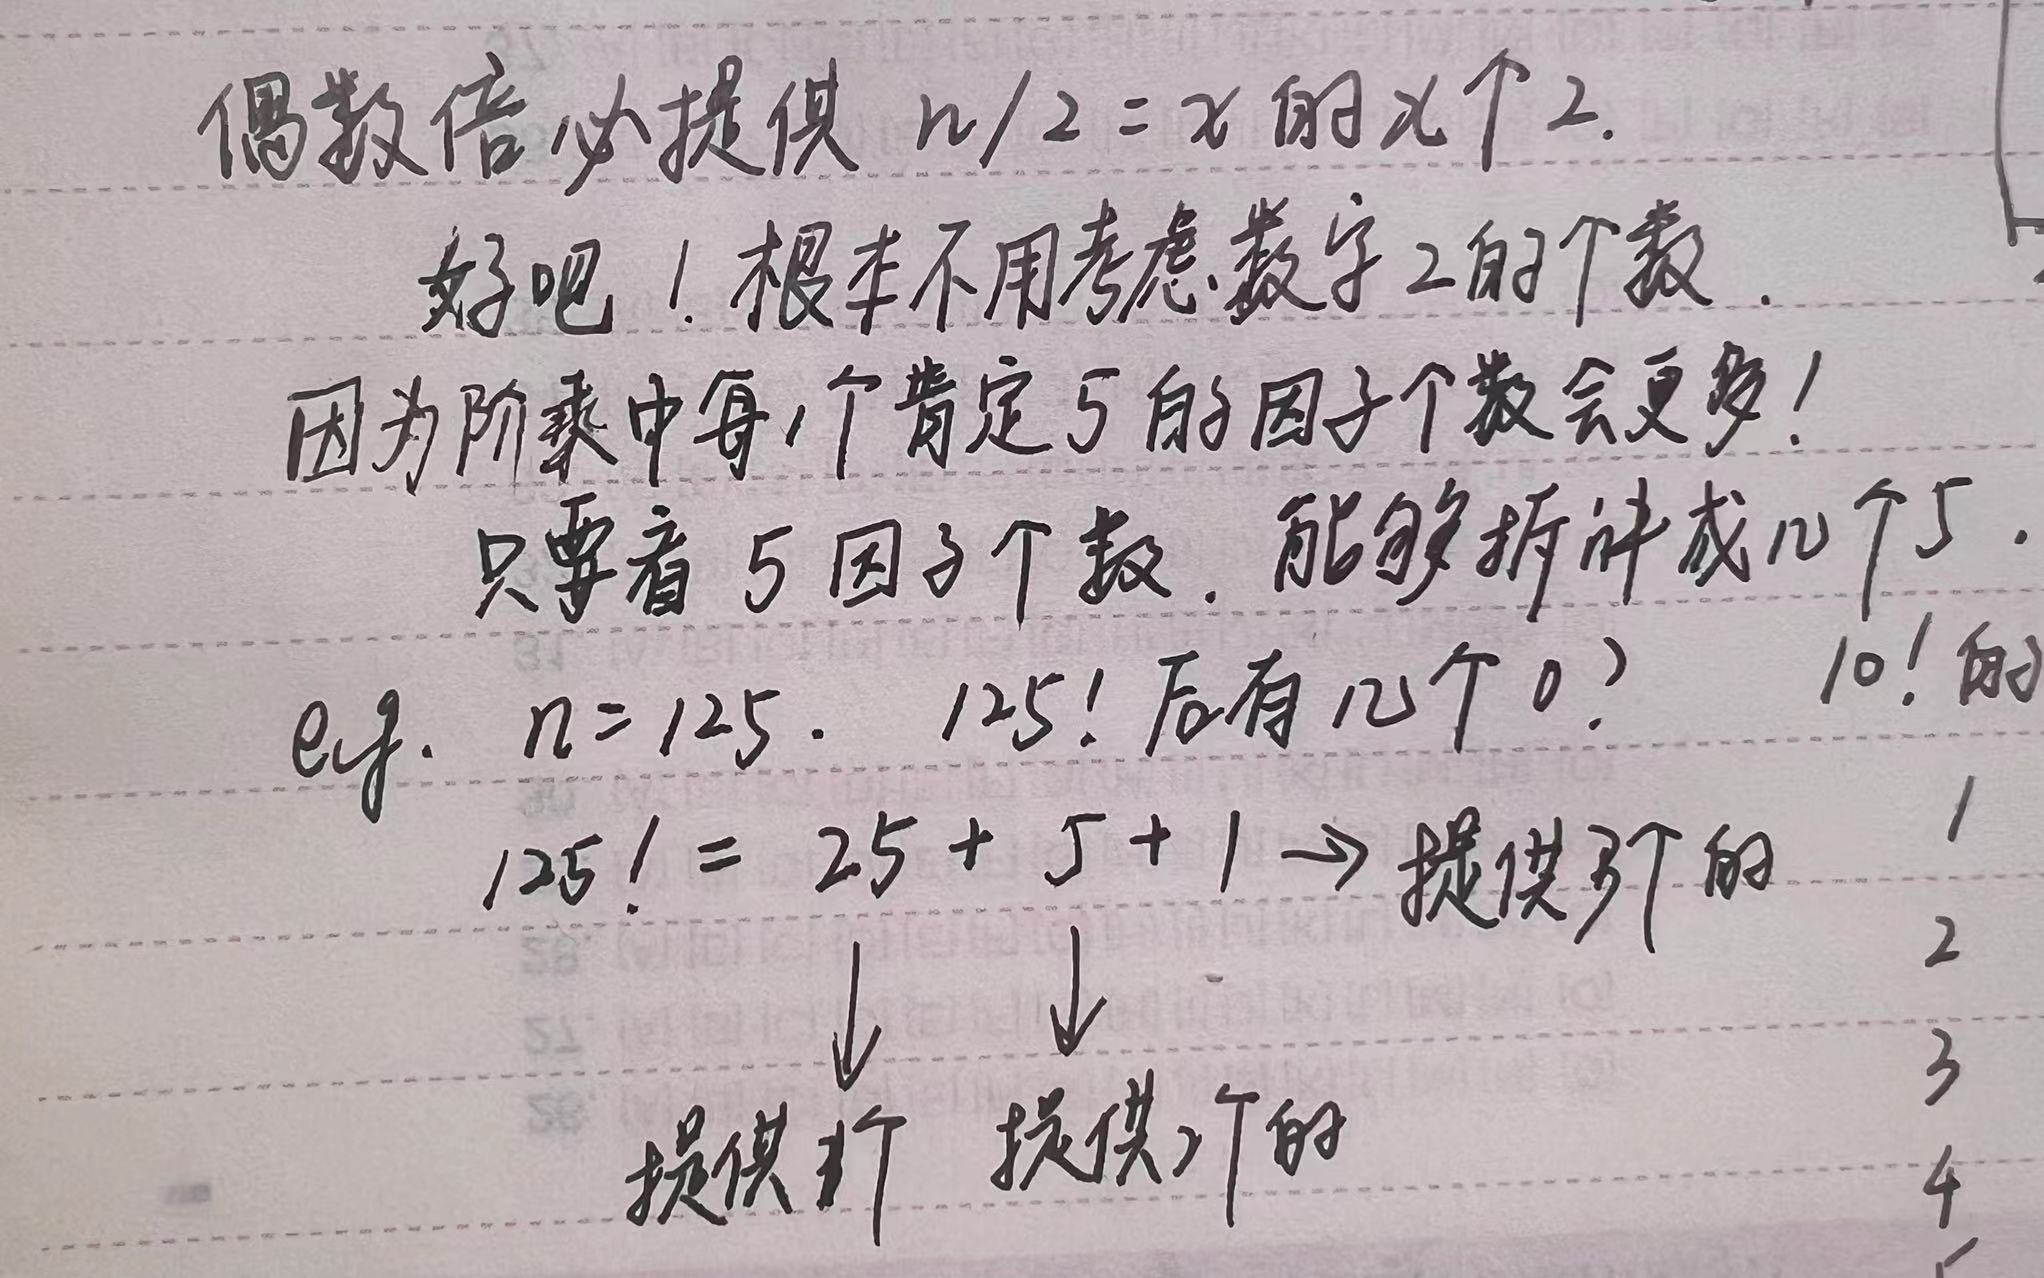 偶数倍必提供 n/2=x 的x个2.
好吧!根本不用考虑数字2的个数.
因为阶乘中每1个肯定5的因子个数会更多!
只要看5因子个数.能够拆解成几个5.
e.g. n=125. 125!后有几个0?
125!=25+5+1→提供3个的
↓ ↓
提供1个 提供2个的
10!的
1
2
3
4